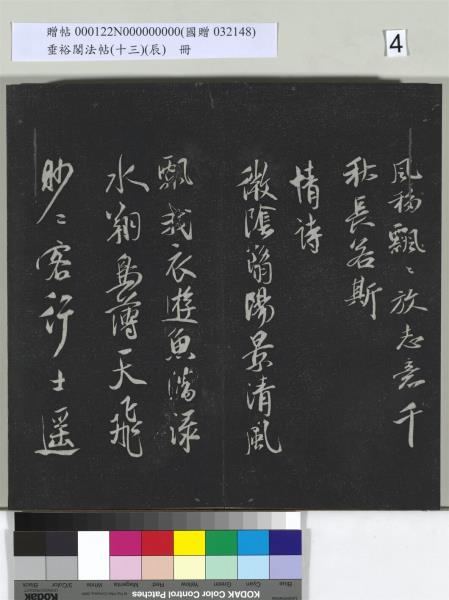 贈帖 000122N000000000(國贈 032148)
垂裕閣法帖(十三)(辰) 冊
4
風穆飄〻放志意千
秋長若斯
情詩
微陰翳陽景清風
飄我衣遊魚潛淥
水翔鳥薄天飛
眇〻客行士遥
Blue
Cyan
Green
Yellow
Red
Magenta
White
3/Color
Black
KODAK Color Control Patches